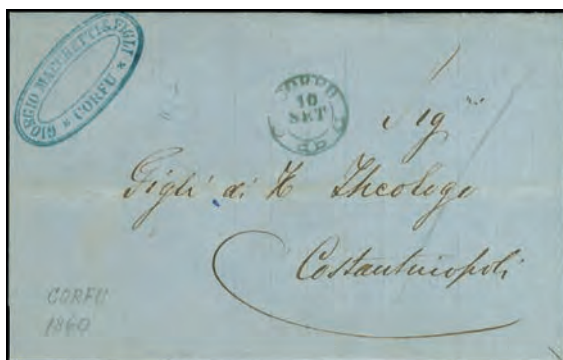 GIORGIO MACCHETTI & FIGLI
* CORFU *
CORFU
10
SET
Sig
Figli di H Theologo
Costantinopoli
CORFU
1860